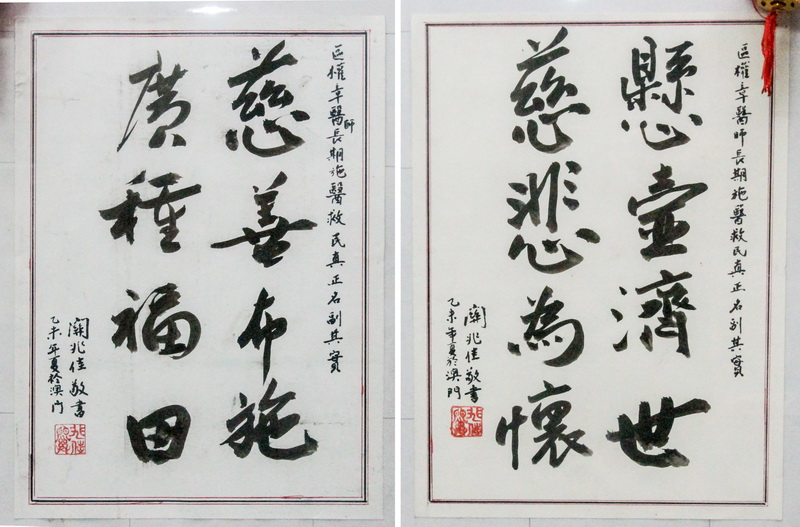 區權章醫師長期施醫救民真正名副其實
慈善布施
廣種福田
關兆佳敬書
乙未年夏於澳门
區權章醫師長期施醫救民真正名副其實
懸壺濟世
慈悲為懷
關兆佳敬書
乙未年夏於澳門